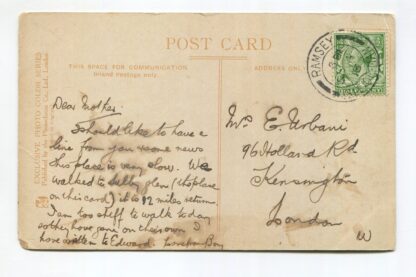 POST CARD
THIS SPACE FOR COMMUNICATION
Inland Postage only.
ADDRESS ON
RAMSEY
EXCLUSIVE PHOTO COLOR SERIES
Dear Mother.
I should like to have a
line from you & some news
this place is very slow. We
walked to Sulby Glen (the place
on this card) it is 12 miles return.
I am too stiff to walk today
so they have gone on their own I
have written to Edward.
Boy
Mrs E. Urbani
96 Holland Rd
Kensington
London
W